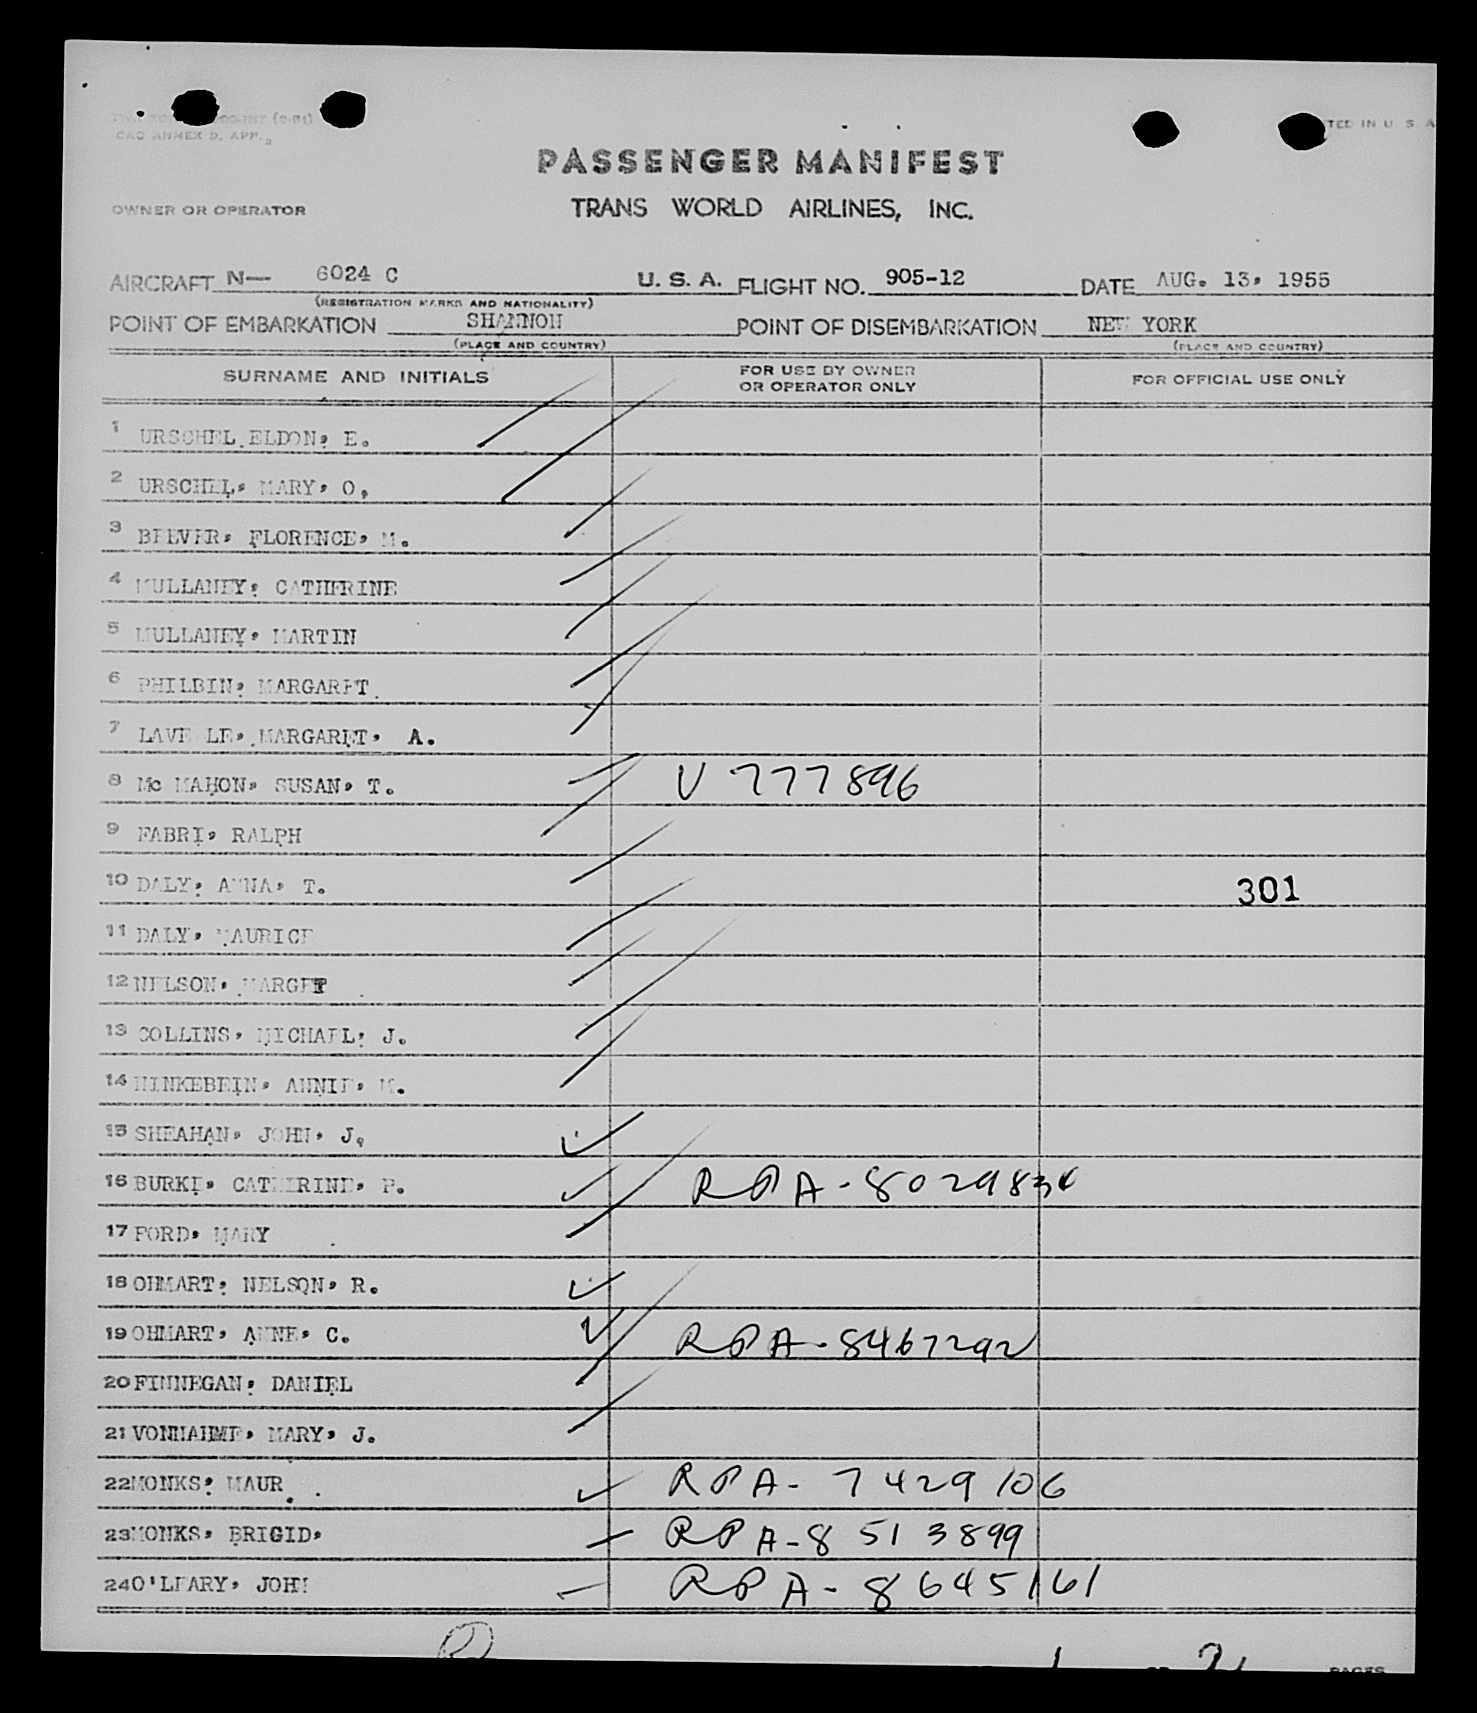 CAO ANNEX D, APP.
TED IN U. S. A
PASSENGER MANIFEST
OWNER OR OPERATOR TRANS WORLD AIRLINES, INC.
AIRCRAFT N— 6024 C U. S. A. FLIGHT NO. 905-12 DATE AUG. 13, 1955
(REGISTRATION MARKS AND NATIONALITY)
POINT OF EMBARKATION SHANNON POINT OF DISEMBARKATION NEW YORK
(PLACE AND COUNTRY) (PLACE AND COUNTRY)
SURNAME AND INITIALS FOR USE BY OWNER OR OPERATOR ONLY FOR OFFICIAL USE ONLY
1 URSCHEL, ELDON, E.
2 URSCHEL, MARY, O,
3 BEEVER, FLORENCE, M.
4 MULLANEY, CATHERINE
5 MULLANEY, MARTIN
6 PHILBIN, MARGARET
7 LAVELLE, MARGARET, A.
8 Mc MAHON, SUSAN, T. V 777896
9 FABRI, RALPH
10 DALY, ANNA, T. 301
11 DALY, MAURICE
12 NELSON, MARGET
13 COLLINS, MICHAEL, J.
14 HINKEBEIN, ANNIE, M.
15 SHEAHAN, JOHN, J,
16 BURKE, CATHERINE, P. RPA-8029834
17 FORD, MARY
18 OHMART, NELSON, R.
19 OHMART, ANNE, C. RPA-8467292
20 FINNEGAN, DANIEL
21 VONNAHME, MARY, J.
22 MONKS, MAUR RPA-7429106
23 MONKS, BRIGID, RPA-8513899
24 O'LEARY, JOHN RPA-8645161
1 OF 21 PAGES